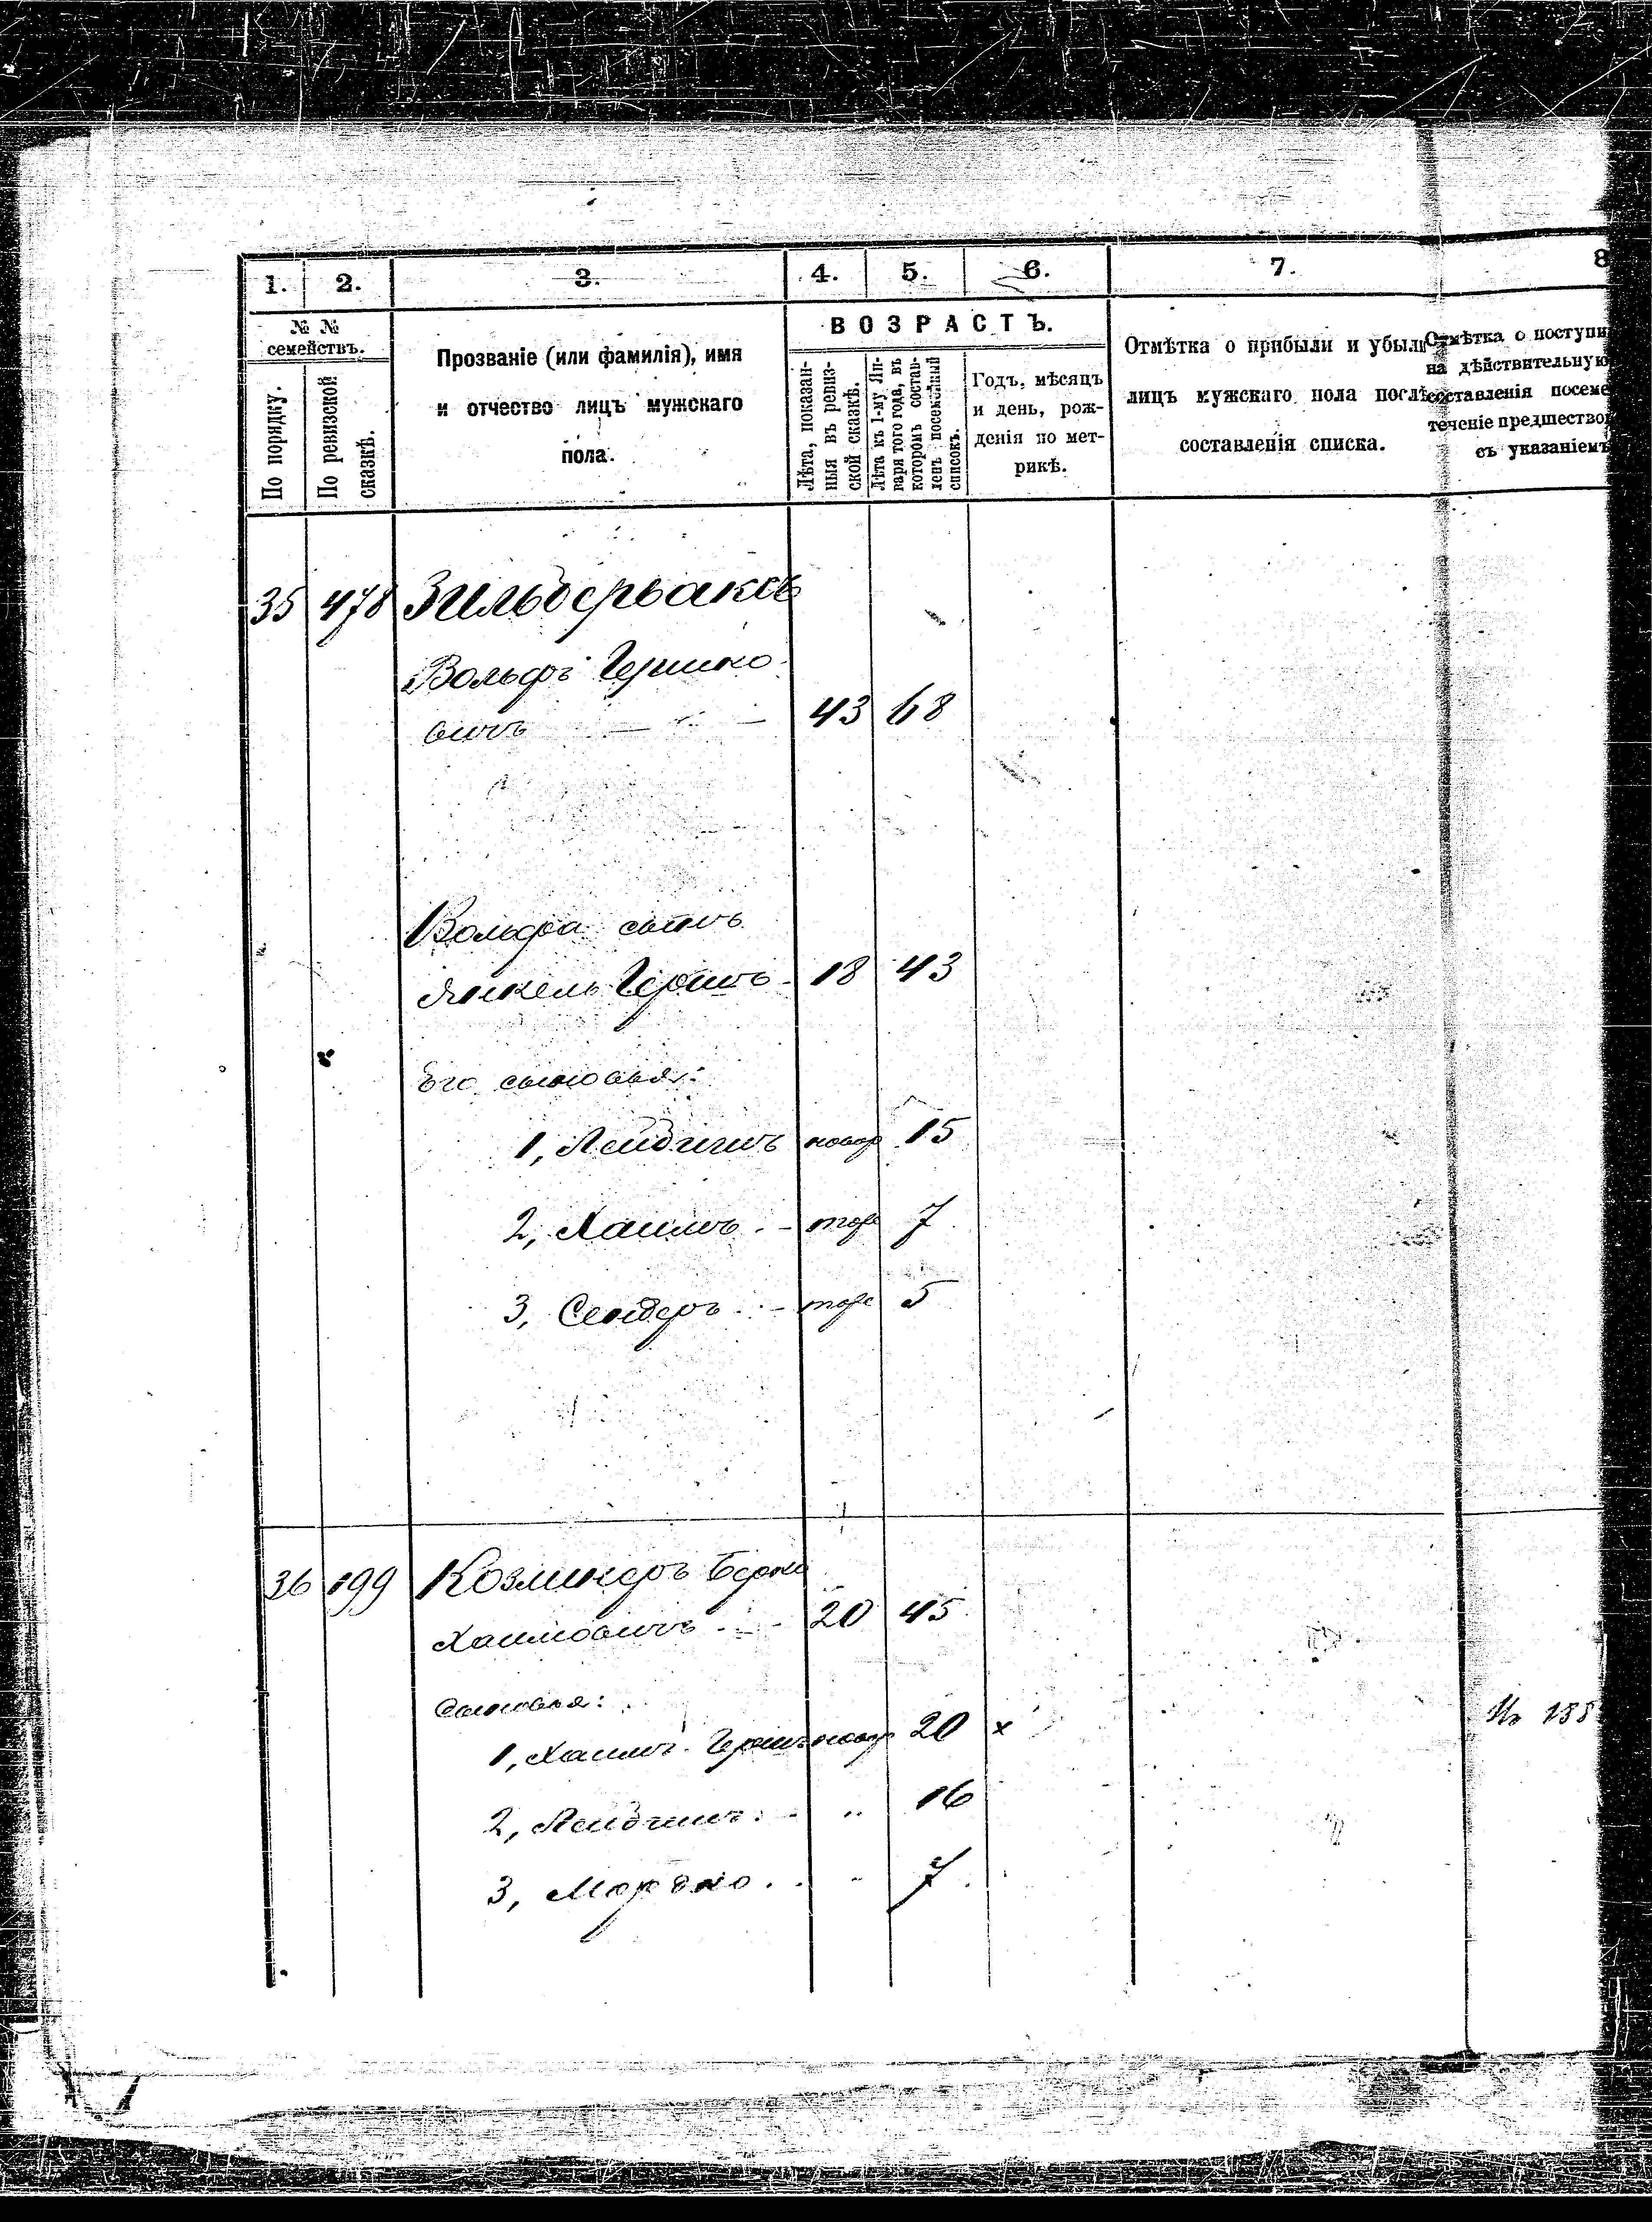 1. 2. 3. 4. 5. 6. 7. 8
№ №
семействъ.
По порядку.
По ревизской
сказкѣ.
Прозваніе (или фамилія), имя
и отчество лицъ мужскаго
пола.
ВОЗРАСТЪ.
Лѣта, показан-
ныя въ ревиз-
ской сказкѣ.
Лѣта къ 1-му Ян-
варя того года, въ
которомъ состав-
ленъ посемейный
списокъ.
Годъ, мѣсяцъ
и день, рож-
денія по мет-
рикѣ.
Отмѣтка о прибыли и убыли
лицъ мужскаго пола послѣ
составленія списка.
Отмѣтка о поступи
на дѣйствительную
составленія посеме
теченіе предшество
съ указаніемъ
35 478 Зильберваксъ
Вольфъ Гершко
вичъ 43 68
Вольфа сынъ
Янкель Гершъ 18 43
Его сыновья:
1, Лейзигинъ новор 15
2, Хаимъ - тоже 7
3, Сендеръ - тоже 5
36 199 Козминеръ Берко
Хаимовичъ - 20 45
Сыновья:
1, Хаимъ Гершъ новор 20 x
2, - „ 16
3, Мордко . „ 7